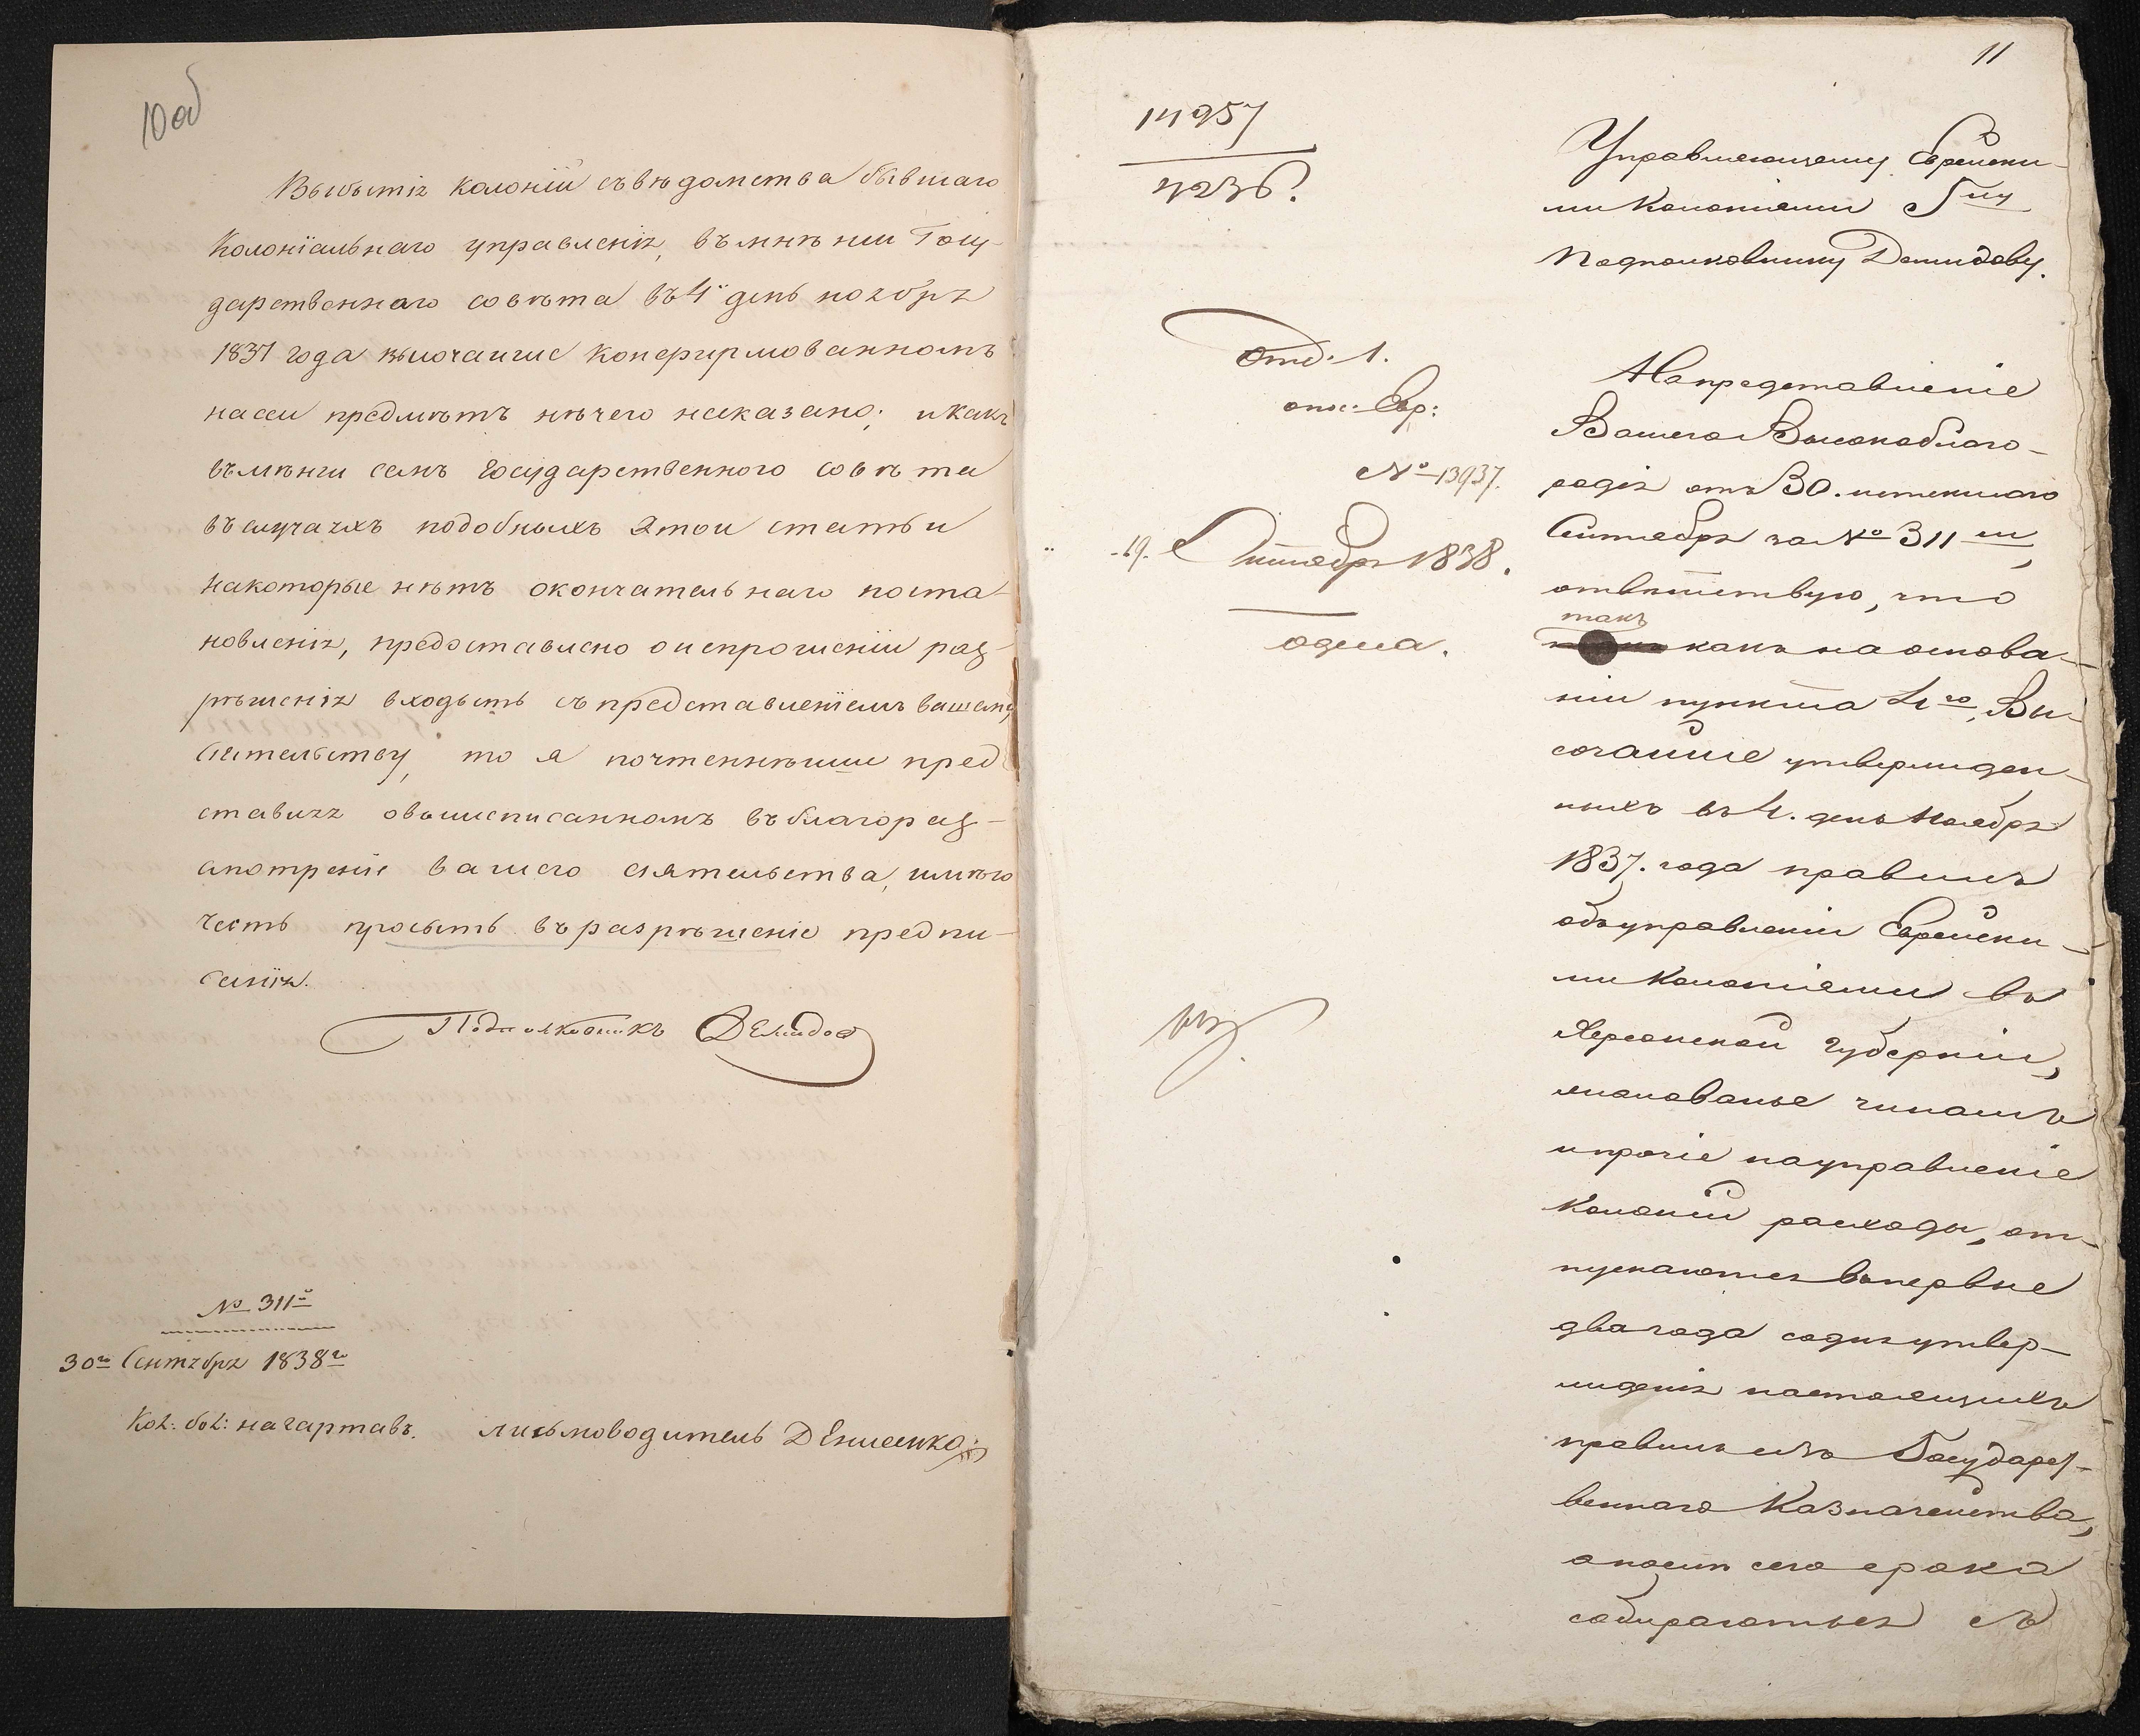 10 об
Выбытiя колонiй съвѣдомства бывшаго
Колонiальнаго управленiя, въмнѣнiи Госу-
дарственнаго совѣта въ 4й день ноября
1837 года высочайше конфирмованномъ
насеи предмѣтъ нѣчего несказано; икакъ
въмнѣнiи семъ Государственного совѣта
въслучаяхъ подобныхъ этой статьи
накоторые нѣтъ окончательнаго поста-
новленiя, предоставлено оиспрошенiи раз-
рѣшенiя входыть съ представленiемъ вашему
Сiятельству, то я почтеннѣише пред
ставляя овышеписанномъ въблагораз-
смотренiе вашего сiятельства, имѣю
честь просыть въразрѣшенiе предпи-
санiя.
Подполковникъ Демидов
№ 311й
30го Сентября 1838го
Кол: бол: нагартавъ. письмоводитель Денисенко
11
14957
4236.
Управляющему Еврейски-
ми Колонiями Гну
Подполковнику Демидову.
Отд. 1.
Евр:
№ 13937.
19. Октября 1838.
Одесса.
Напредставленiе
Вашего Высокоблаго-
родiя отъ 30. истекшаго
Сентября за № 311м,
отвѣтствую, что
такъ
какъ на основа-
нiи пункта 4го, Вы-
сочайше утвержден-
ныхъ въ 4. день Ноября
1837. года правилъ
объуправленiи Еврейски-
ми Колонiями въ
Херсонской губернiи,
жалованье чинамъ
ипрочiе науправленiе
Колонiй расходы, от-
пускаются вопервые
два года содня утвер-
жденiя настоящихъ
правилъ изъ Государст-
веннаго Казначейства,
апослѣ сего срока
собираються съ